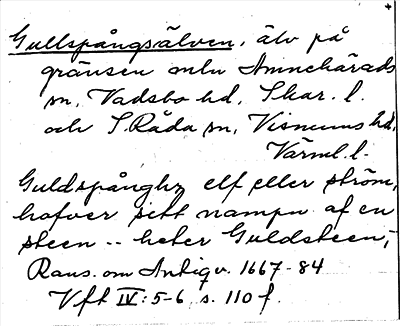 Gullspångsälven, älv på
gränsen mln Amnehärads
sn, Vadsbo hd, Skar. l.
och S. Råda sn, Visnums hd,
Värml. l.
Guldspånghz elf eller ström,
hafver sitt nampn af en
steen -- heter Guldsteen,
Rans. om Antiqv. 1667-84
Vft IV: 5-6 s. 110 f.